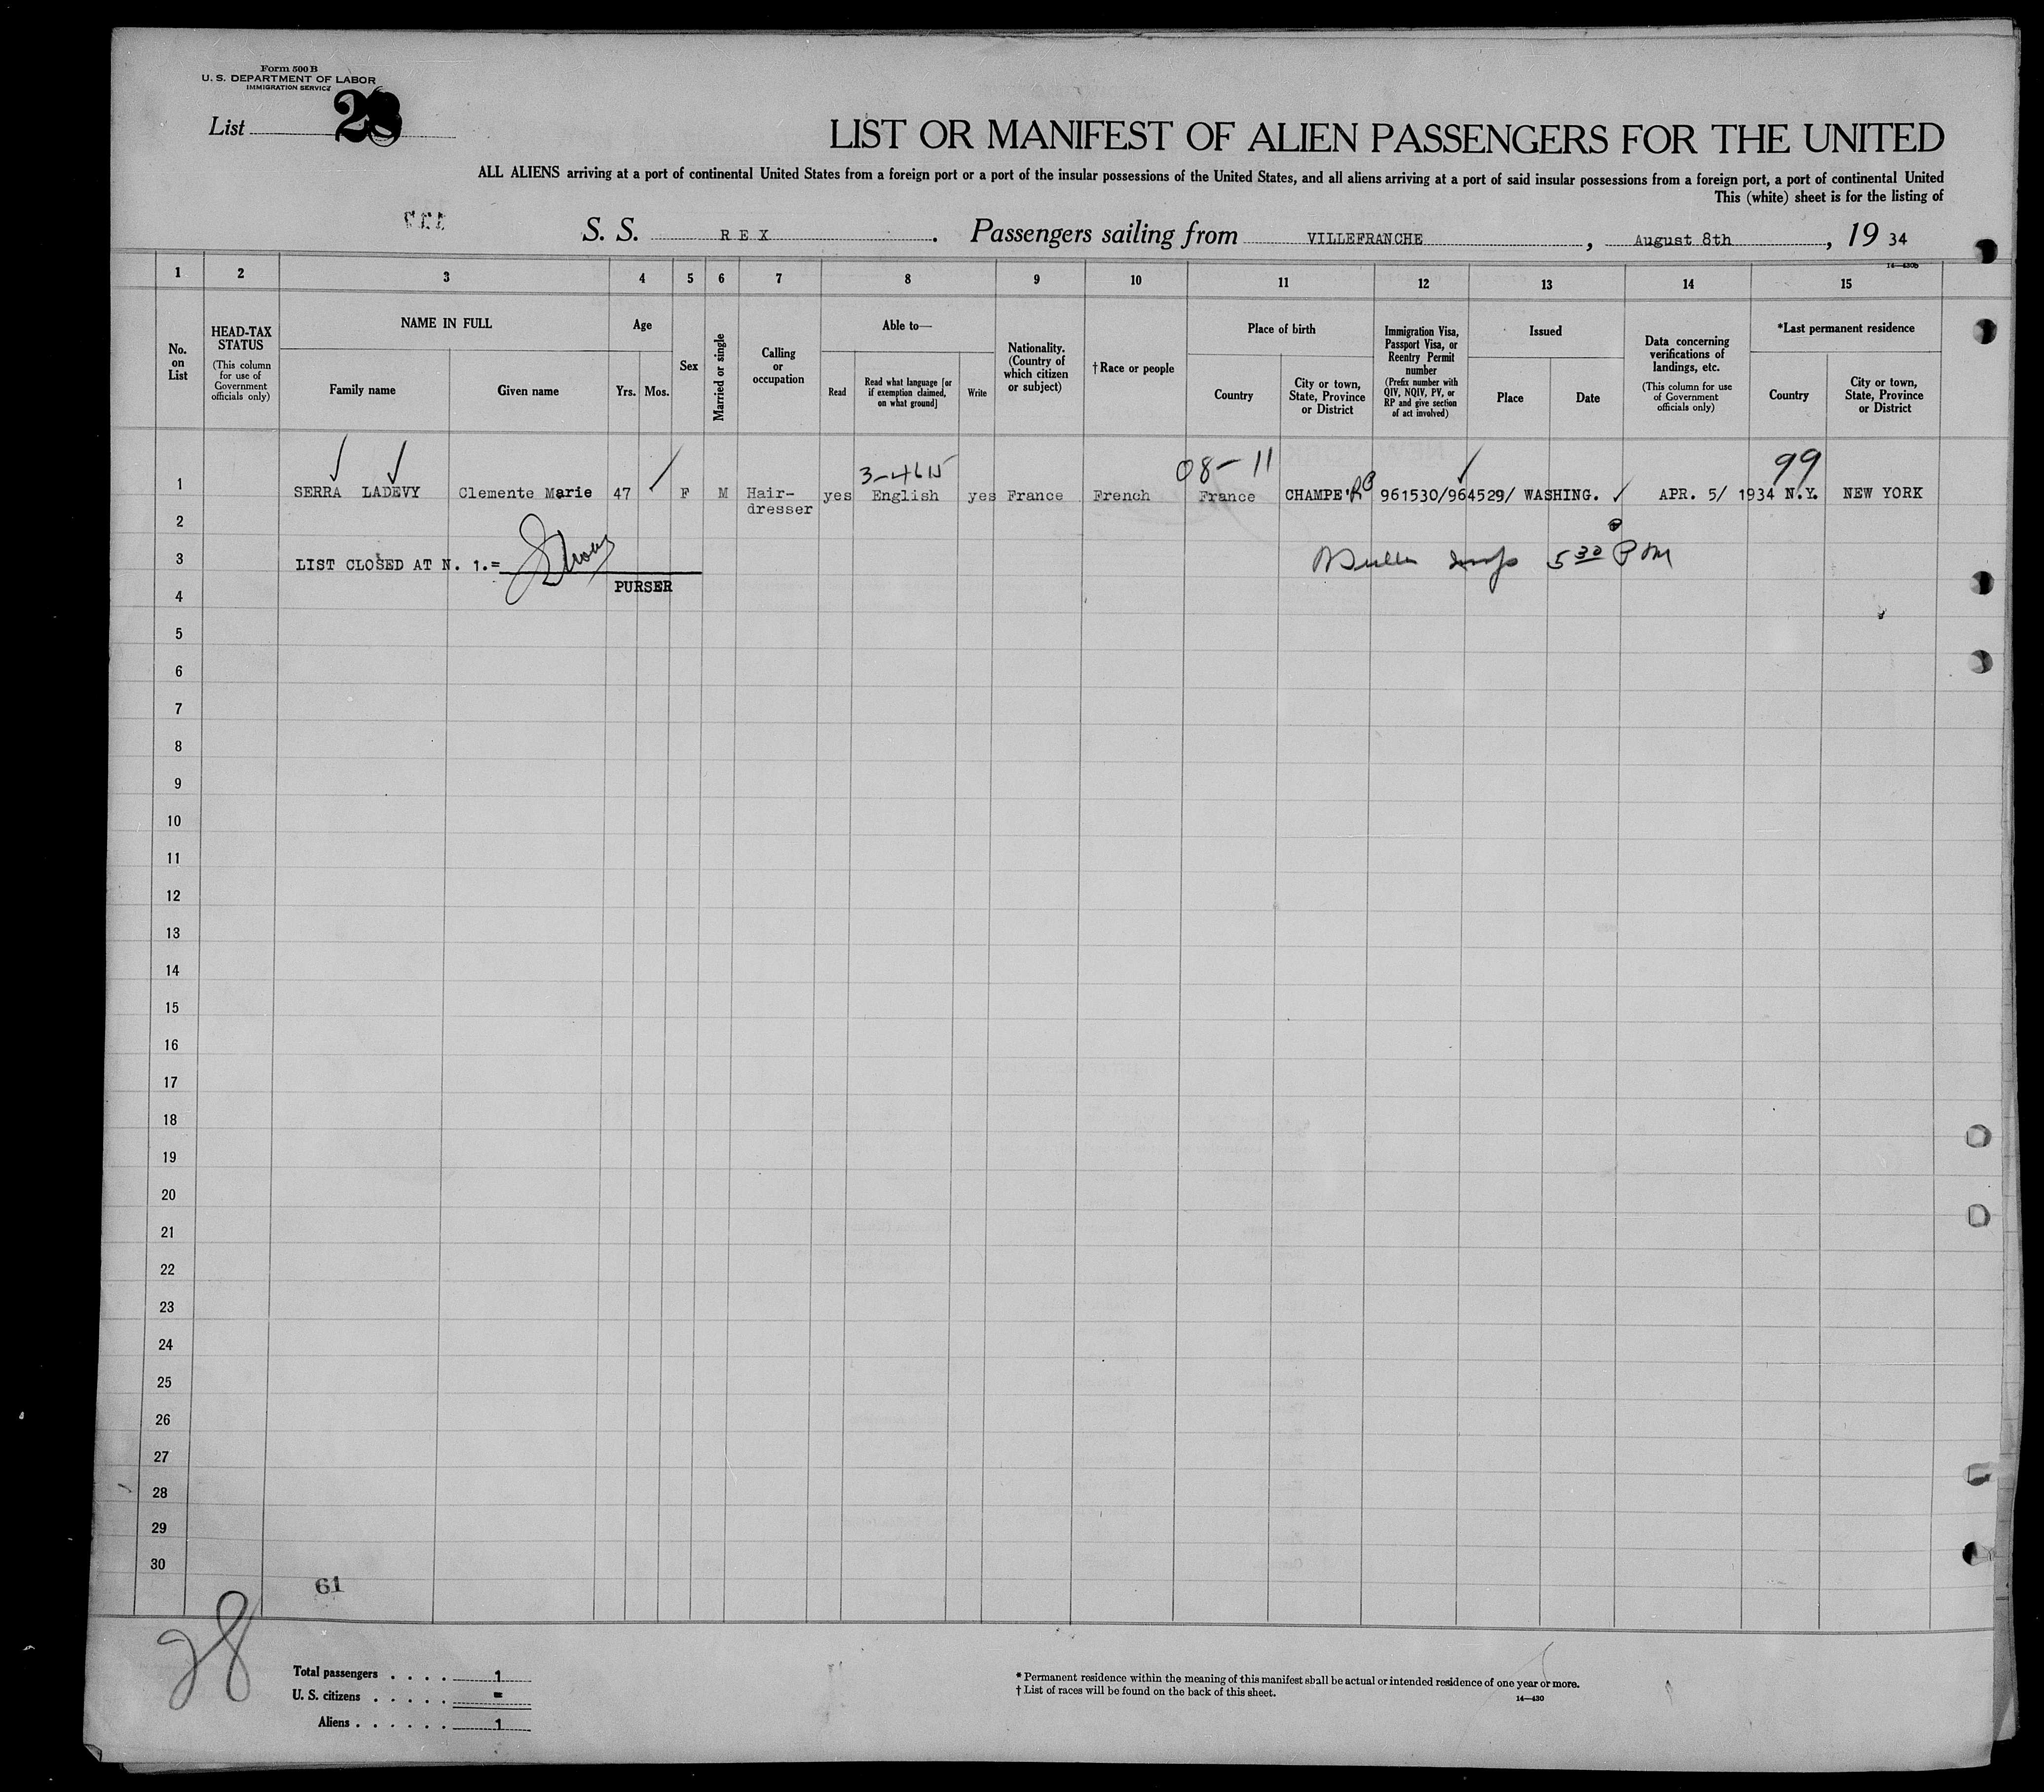 Form 500 B
U. S. DEPARTMENT OF LABOR
IMMIGRATION SERVICE
List 28
LIST OR MANIFEST OF ALIEN PASSENGERS FOR THE UNITED
ALL ALIENS arriving at a port of continental United States from a foreign port or a port of the insular possessions of the United States, and all aliens arriving at a port of said insular possessions from a foreign port, a port of continental United
This (white) sheet is for the listing of
S. S. REX. Passengers sailing from VILLEFRANCHE, August 8th, 19 34
14—430b
1 2 3 4 5 6 7 8 9 10 11 12 13 14 15
No. on List
HEAD-TAX STATUS
(This column for use of Government officials only)
NAME IN FULL
Family name Given name
Age
Yrs. Mos.
Sex
Married or single
Calling or occupation
Able to—
Read
Read what language [or if exemption claimed, on what ground]
Write
Nationality. (Country of which citizen or subject)
†Race or people
Place of birth
Country
City or town, State, Province or District
Immigration Visa, Passport Visa, or Reentry Permit number
(Prefix number with QIV, NQIV, PV, or RP and give section of act involved)
Issued
Place Date
Data concerning verifications of landings, etc.
(This column for use of Government officials only)
*Last permanent residence
Country
City or town, State, Province or District
3-4615 08-11 99
1 SERRA LADEVY Clemente Marie 47 F M Hair- yes English yes France French France CHAMPE 961530/964529/ WASHING. APR. 5/ 1934 N.Y. NEW YORK
dresser
2
3 LIST CLOSED AT N. 1.= 5 30 P M
PURSER
4
5
6
7
8
9
10
11
12
13
14
15
16
17
18
19
20
21
22
23
24
25
26
27
28
29
30
61
28
Total passengers . . . . 1
U. S. citizens . . . . . =
Aliens . . . . . . 1
* Permanent residence within the meaning of this manifest shall be actual or intended residence of one year or more.
† List of races will be found on the back of this sheet.
14—430